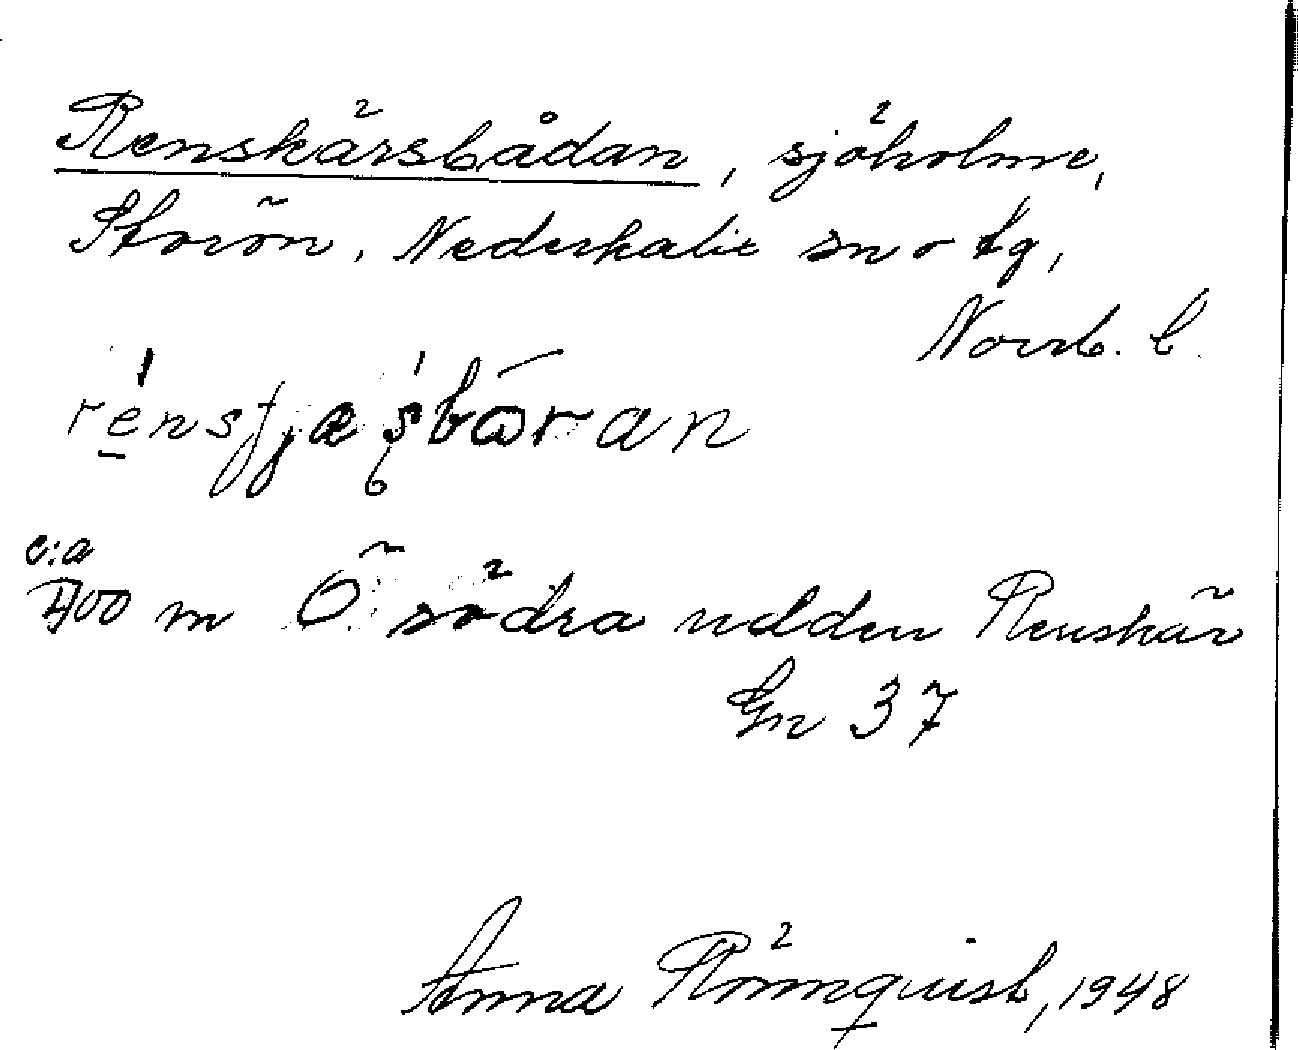 Renskärsbådan, sjöholme,
Storön, Nederkalix sn o tg,
Norrb. l.
c:a
400 m Ö södra udden Renskär
Gn 37
Anna Rönnquist, 1948